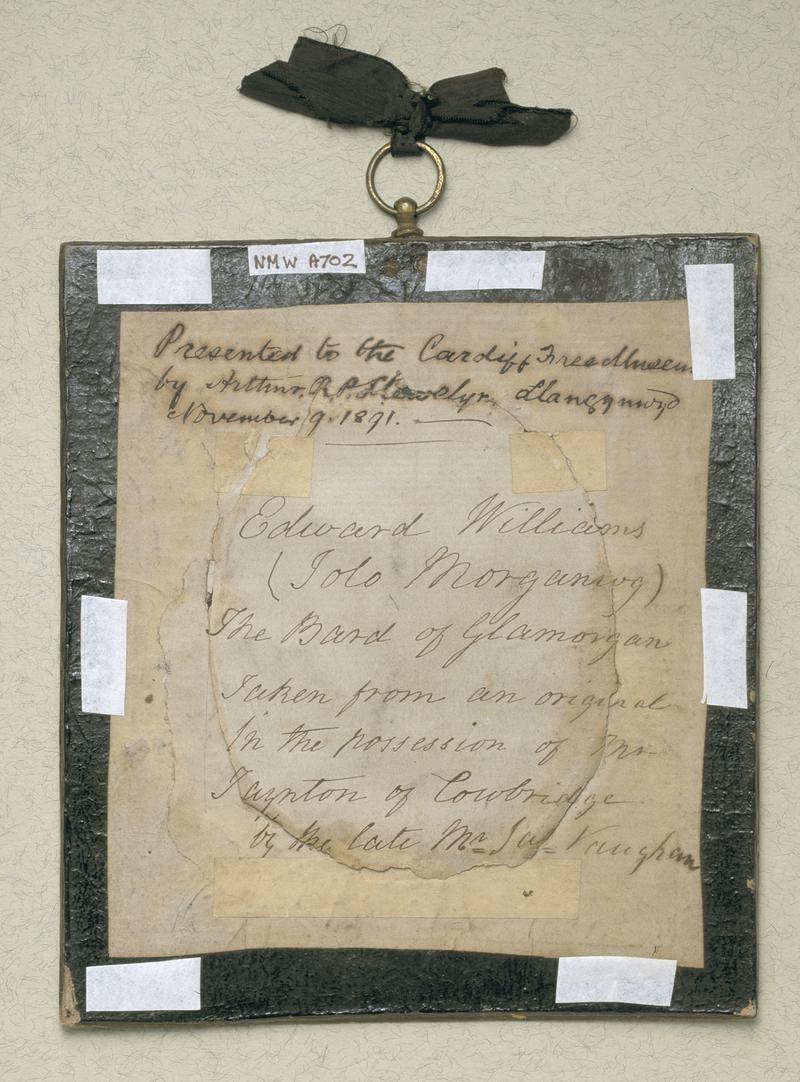 NMW A702
Presented to the Cardiff Free Museum
by Arthur. R. P. Llewelyn. Llangynwyd
November 9. 1891.
Edward Williams
(Iolo Morganwg)
The Bard of Glamorgan
Taken from an original
In the possession of Mr
Taynton of Cowbridge
by the late Mr Jas Vaughan